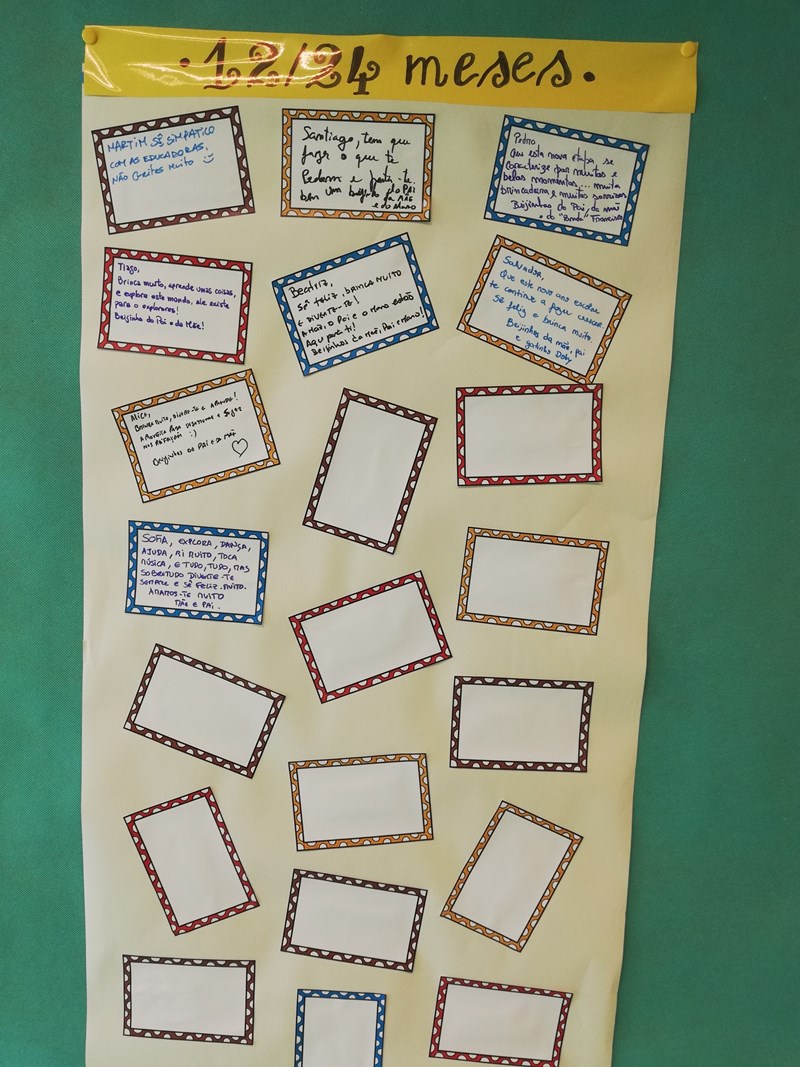 .12/24 meses.
MARTIM SÊ SIMPÁTICO
COM AS EDUCADORAS,
NÃO GRITES MUITO
Santiago, tem que
fazer o que te
Pedem e porta-te
bem um beijinho do Pai
da Mãe
e do Mano
Pedro,
Que esta nova etapa, se
concretize por muitos e
belos momentos... muita
brincadeira e muitos sorrisos
Beijinhos do Pai, da mãe
e do Francisco
Tiago,
Brinca muito, aprende umas coisas,
e explora este mundo, ele existe
para o explorares!
Beijinho do Pai e da Mãe!
Beatriz,
SÊ FELIZ, BRINCA MUITO
E DIVERTE-TE!
A MÃE, O Pai e O mano estão
Aqui para ti!
Beijinhos da Mãe, Pai e Mano!
Salvador,
Que este novo ano escolar
te continue a fazer crescer.
Sê feliz e brinca muito.
Beijinhos da mãe, pai
e gatinho Doby
Alice,
BRINCA MUITO, DIVERTE-TE E APRENDE!
nas REFEIÇÕES :)
Beijinhos do PAI E DA MÃE
SOFIA, EXPLORA, DANÇA,
AJUDA, RI MUITO, TOCA
MÚSICA, E TUDO, TUDO, MAS
SOBRETUDO DIVERTE-TE
SEMPRE E SÊ FELIZ. MUITO.
AMAMOS-TE MUITO
MÃE E PAI.